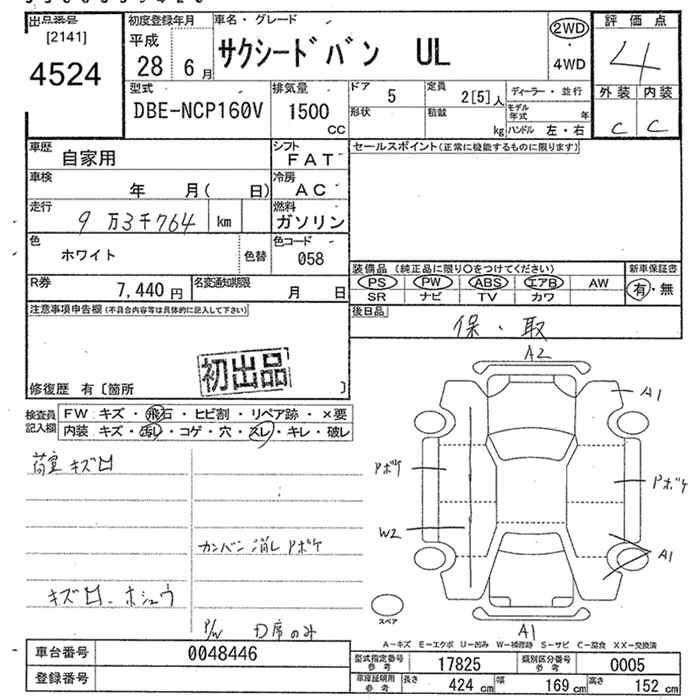 出品番号
[2141]
4524
初度登録年月
平成
28 6月
車名・グレード
サクシードバン UL
2WD
・
4WD
評価点
4
外装 内装
C C
型式
DBE-NCP160V
排気量
1500
CC
ドア
5
定員
2[5]人
形状
積載
kg
ディーラー・並行
モデル
年式 年
ハンドル 左・右
車歴
自家用
シフト
FAT
車検
年 月( 日)
冷房
AC
走行
9万3千764 km
燃料
ガソリン
色
ホワイト
色替
色コード
058
R券
7,440円
名変通知期限
月 日
セールスポイント(正常に機能するものに限ります)
装備品(純正品に限り○をつけてください)
PS PW ABS エアB AW
SR ナビ TV カワ
新車保証書
有・無
後日品
保・取
注意事項申告欄(不具合内容等は具体的に記入して下さい)
初出品
修復歴 有〔箇所 〕
検査員
記入欄
FW キズ・飛石・ヒビ割・リペア跡・×要
内装 キズ・汚レ・コゲ・穴・スレ・キレ・破レ
荷室キズ凹
カンバン消しPボケ
キズ凹ホシュウ
P/W D席のみ
A2
A1
Pボケ
Pボケ
W2
A1
スペア
A1
A-キズ E-エクボ U-凹み W-補修跡 S-サビ C-腐食 XX-交換済
車台番号
0048446
登録番号
型式指定番号
参考
17825
類別区分番号
参考
0005
車庫証明用
参考
長さ 424cm 幅 169cm 高さ 152cm